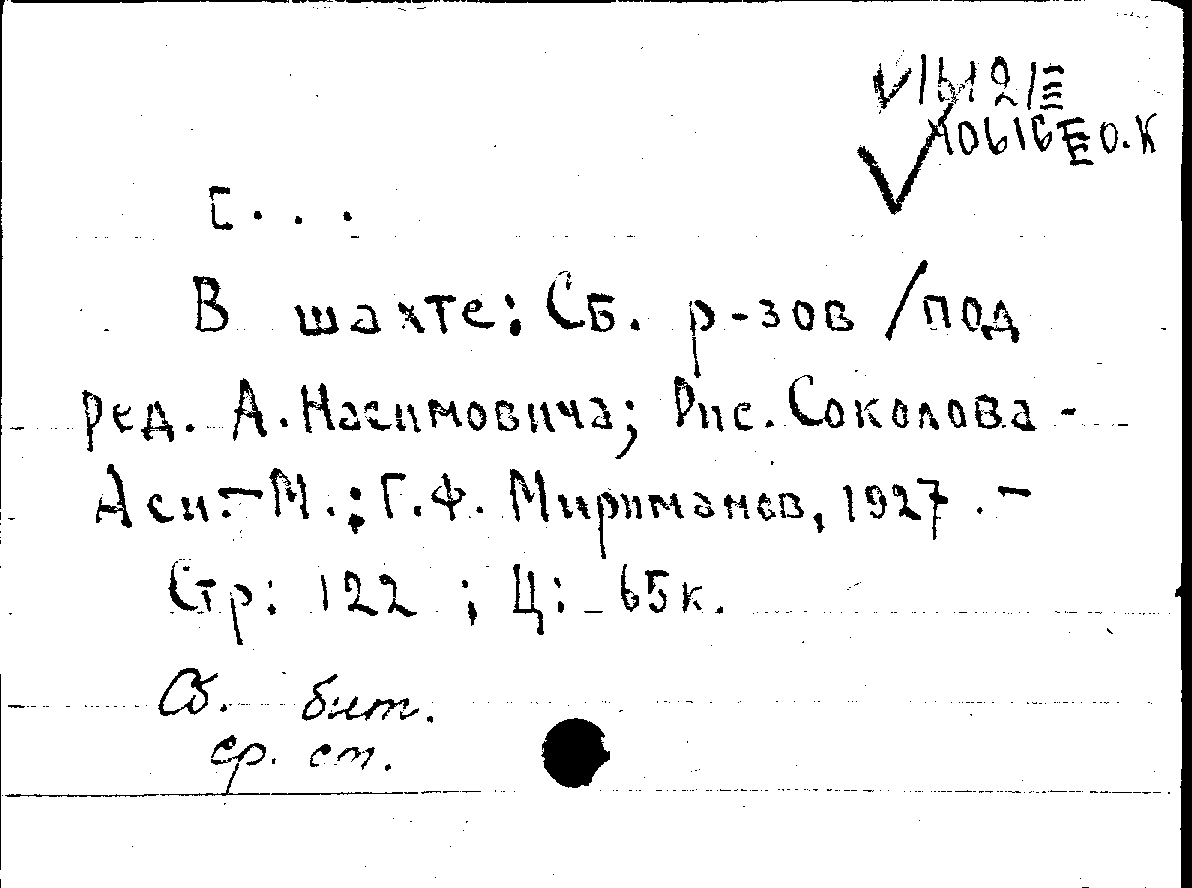 16121
10616 О.К
[...
В шахте: Сб. р-зов / под
ред. А. Насимовича; Рис. Соколова -
Аси. - М.: Г.Ф. Мириманов, 1927. -
Стр: 122 ; Ц: 65к.
Сб. быт.
ср. ст.